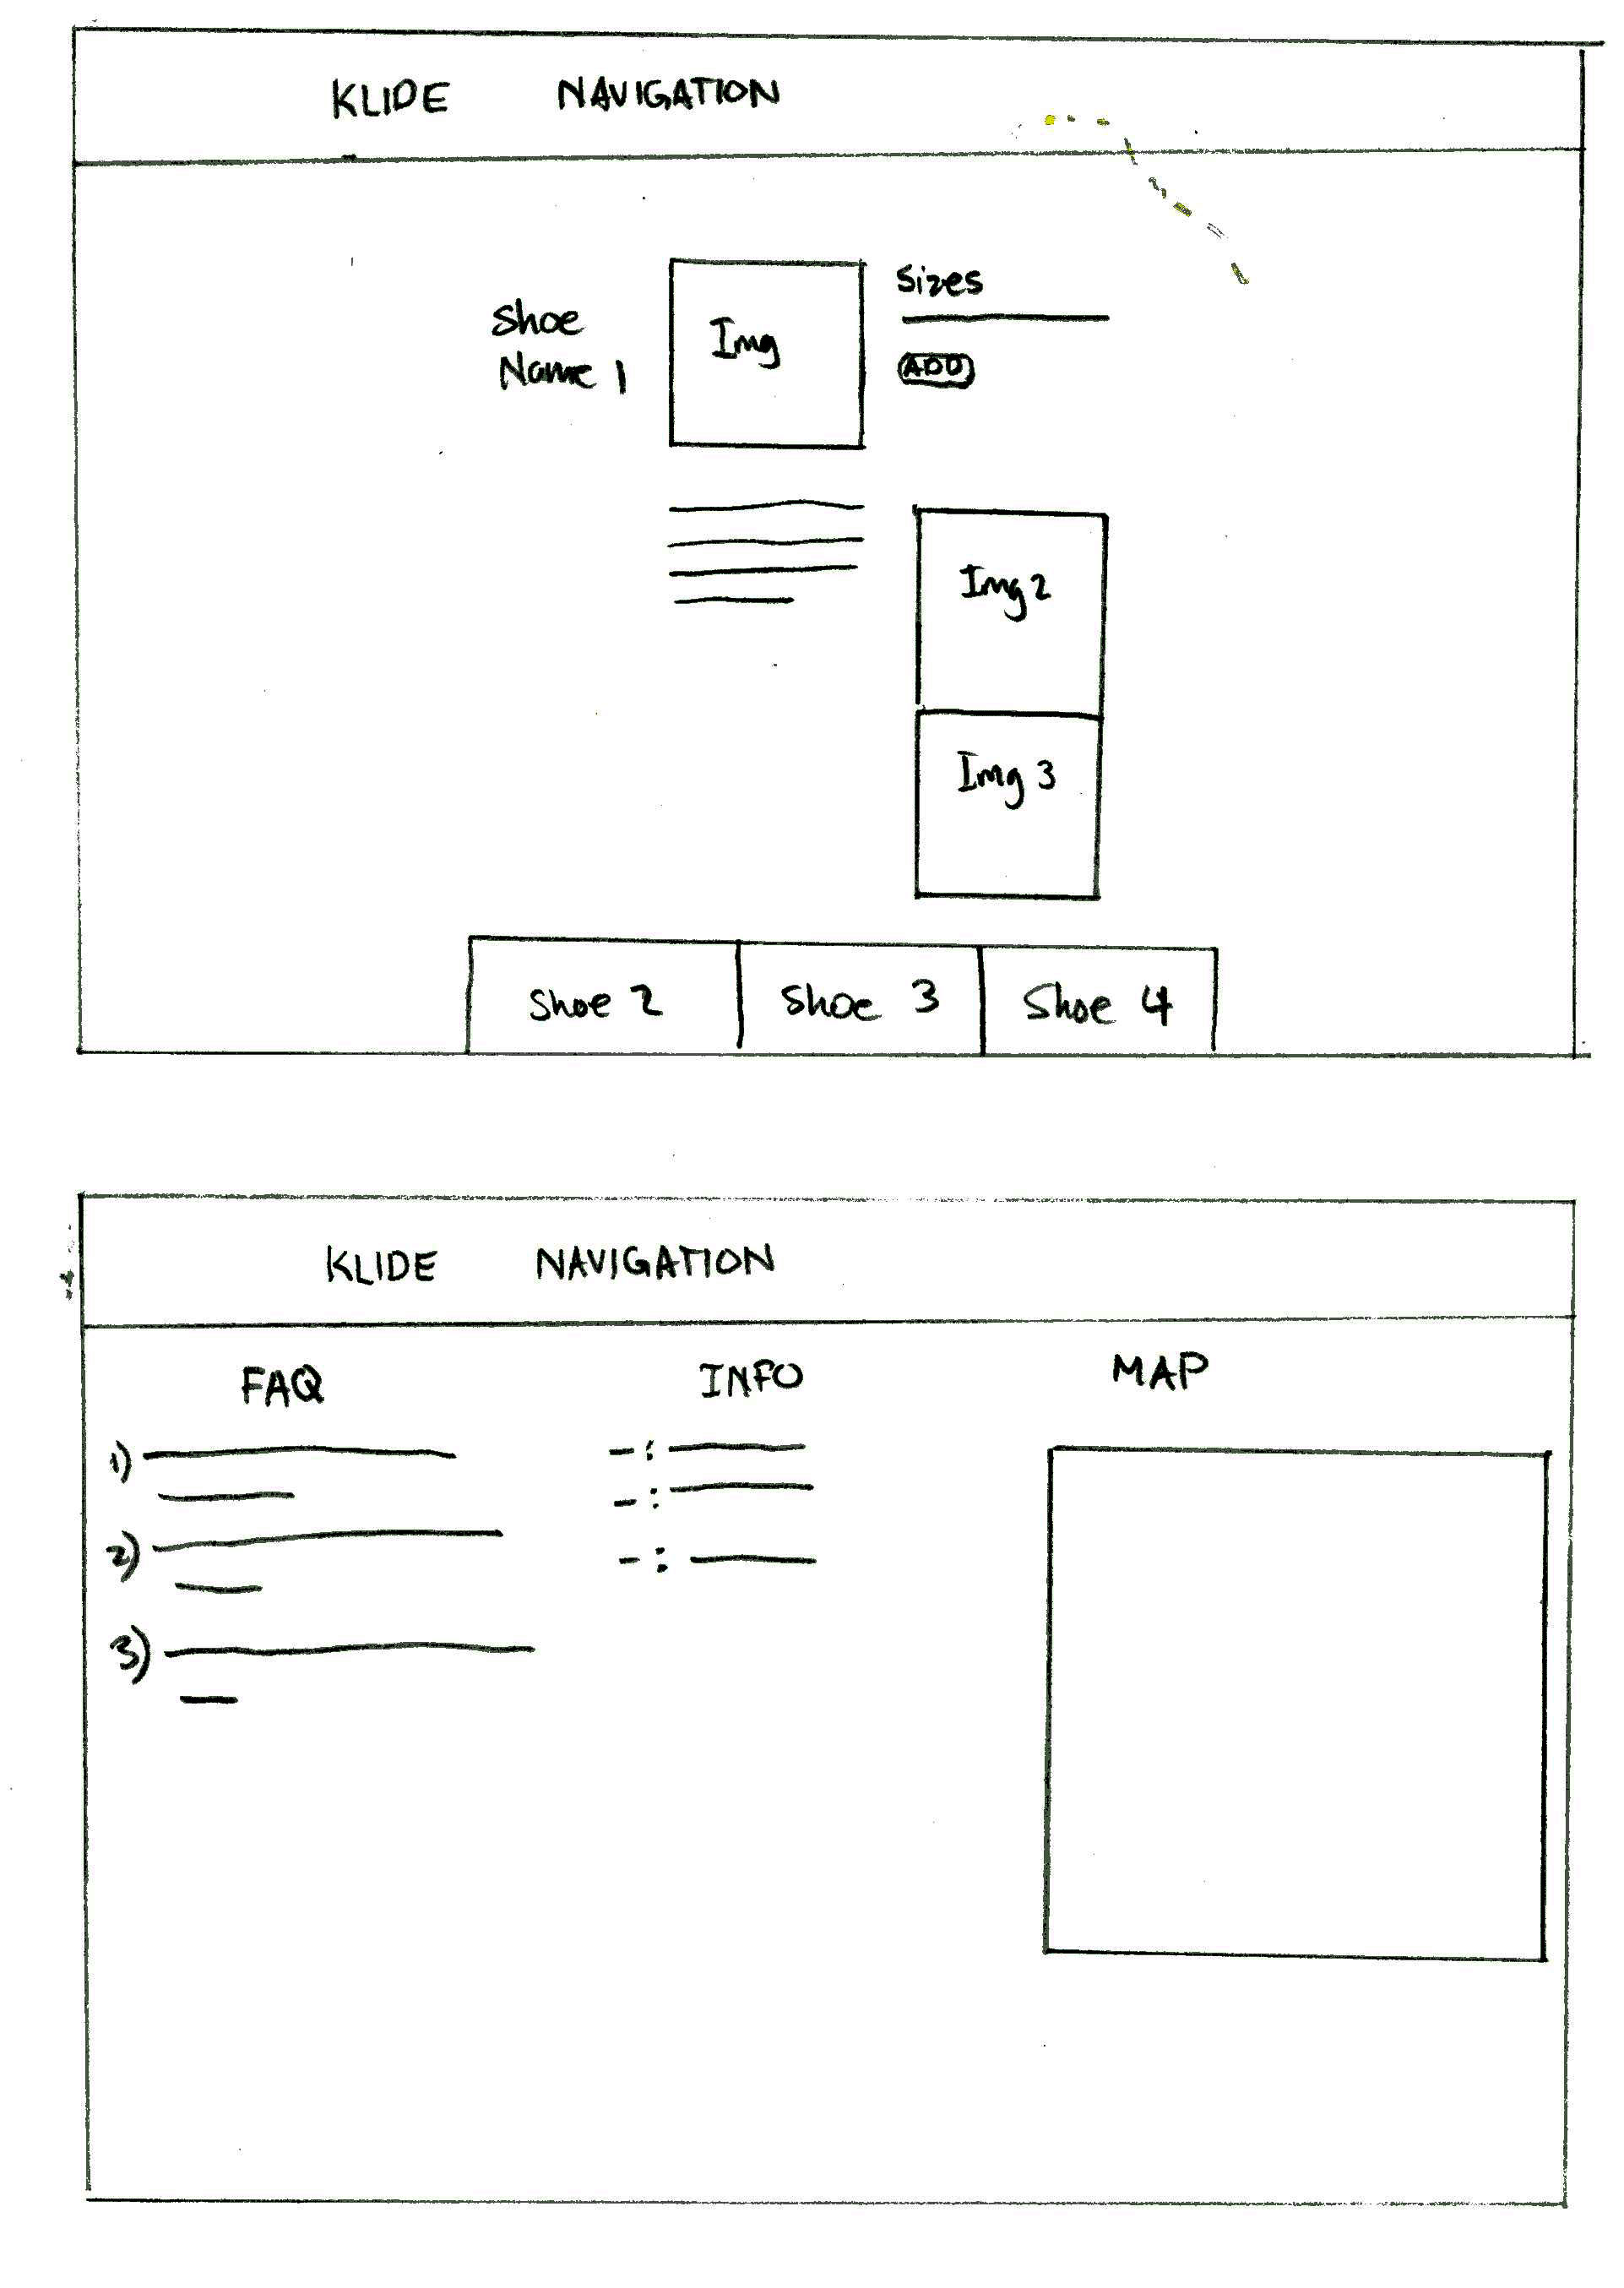 KLIDE NAVIGATION
Shoe
Name 1
Img
Sizes
ADD
Img 2
Img 3
Shoe 2
Shoe 3
Shoe 4
KLIDE NAVIGATION
FAQ
1)
2)
3)
INFO
- :
- :
- :
MAP